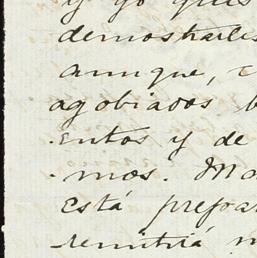 y yo quis
demostrarles
aunque,
agobiados b
entos y de
mos. Ma
está prepar
remitirá m